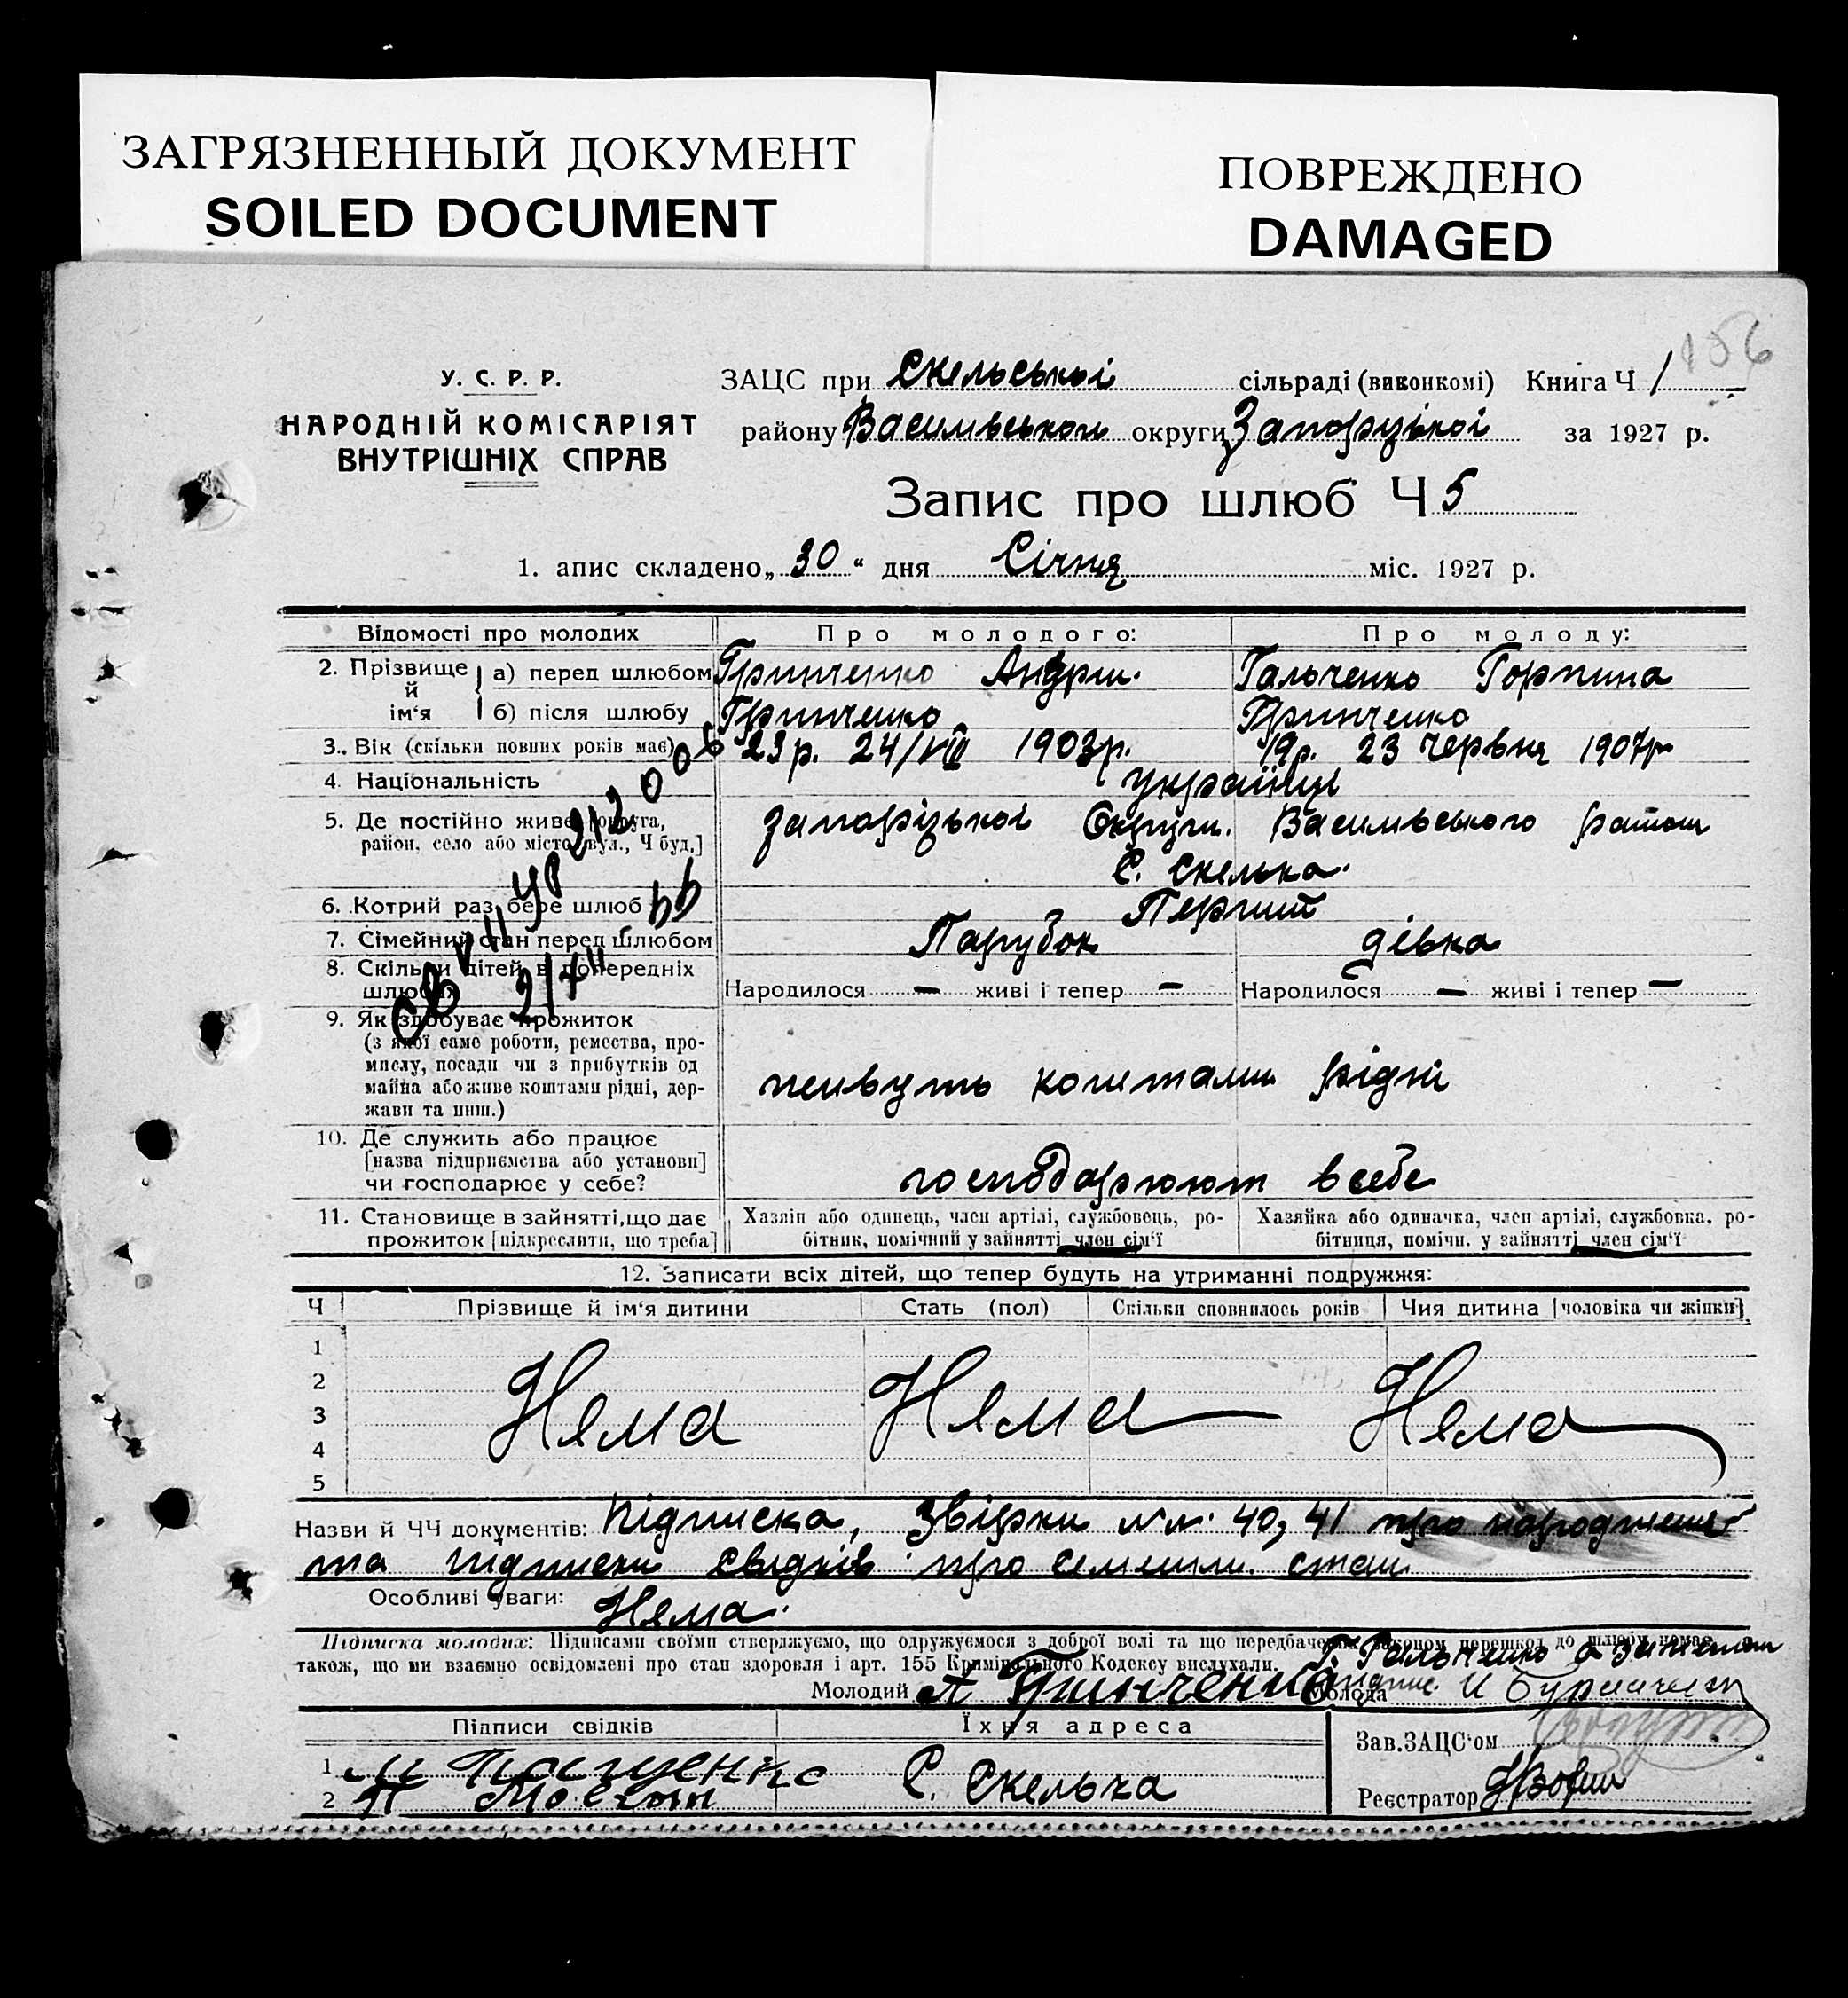 ЗАГРЯЗНЕННЫЙ ДОКУМЕНТ
SOILED DOCUMENT
ПОВРЕЖДЕНО
DAMAGED
156
У. С. Р. Р.
НАРОДНІЙ КОМІСАРІЯТ
ВНУТРІШНІХ СПРАВ
ЗАЦС при Скельської сільраді (виконкомі) Книга Ч 1
району Василівського округи Запорізької за 1927 р.
Запис про шлюб Ч 5
1. апис складено „ 30 “ дня Січня міс. 1927 р.
Відомості про молодих Про молодого: Про молоду:
2. Прізвище й ім‘я а) перед шлюбом Гринченко Андрій. Гальченко Горпина
б) після шлюбу Гринченко Гринченко
3. Вік (скільки повних років має) 23 р. 24/VIII 1903 р. 19 р. 23 червня 1907 р
4. Національність українці
5. Де постійно живе [округа, Запорізької Округи. Василівського району
район, село або місто, вул., Ч буд.] С. Скелька.
6. Котрий раз бере шлюб Перший
7. Сімейний стан перед шлюбом Парубок дівка
8. Скільки дітей в попередніх
шлюбах Народилося — живі і тепер — Народилося — живі і тепер —
9. Як здобуває прожиток
(з якої саме роботи, ремества, про-
мислу, посади чи з прибутків од
майна або живе коштами рідні, дер- живуть коштами рідні
жави та инш.)
10. Де служить або працює
[назва підприємства або установи]
чи господарює у себе? господарюют в себе
11. Становище в зайнятті, що дає Хазяїн або одинець, член артілі, службовець, ро- Хазяйка або одиначка, член артілі, службовка, ро-
прожиток [підкреслити, що треба] бітник, помічний у зайнятті член сім‘ї бітниця, помічн. у зайнятті член сім‘ї
12. Записати всіх дітей, що тепер будуть на утриманні подружжя:
Ч Прізвище й ім‘я дитини Стать (пол) Скільки сповнилось років Чия дитина [чоловіка чи жінки]
1
2
3 Нема Нема Нема
4
5
Назви й ЧЧ документів: Підписка, Звірки №№ 40, 41 про народження
та підписки свідків про семейн. стан
Особливі уваги: Нема.
Підписка молодих: Підписами своїми стверджуємо, що одружуємося з доброї волі та що передбачених законом перешкод до шлюбу немає, а
також, що ми взаємно освідомлені про стан здоровля і арт. 155 Кримінального Кодексу вислухали. Г. Гальченко а за
Молодий А Гринченко Молода
Підписи свідків Їхня адреса Зав. ЗАЦС‘ом
1 С. Скелька
2 Реєстратор